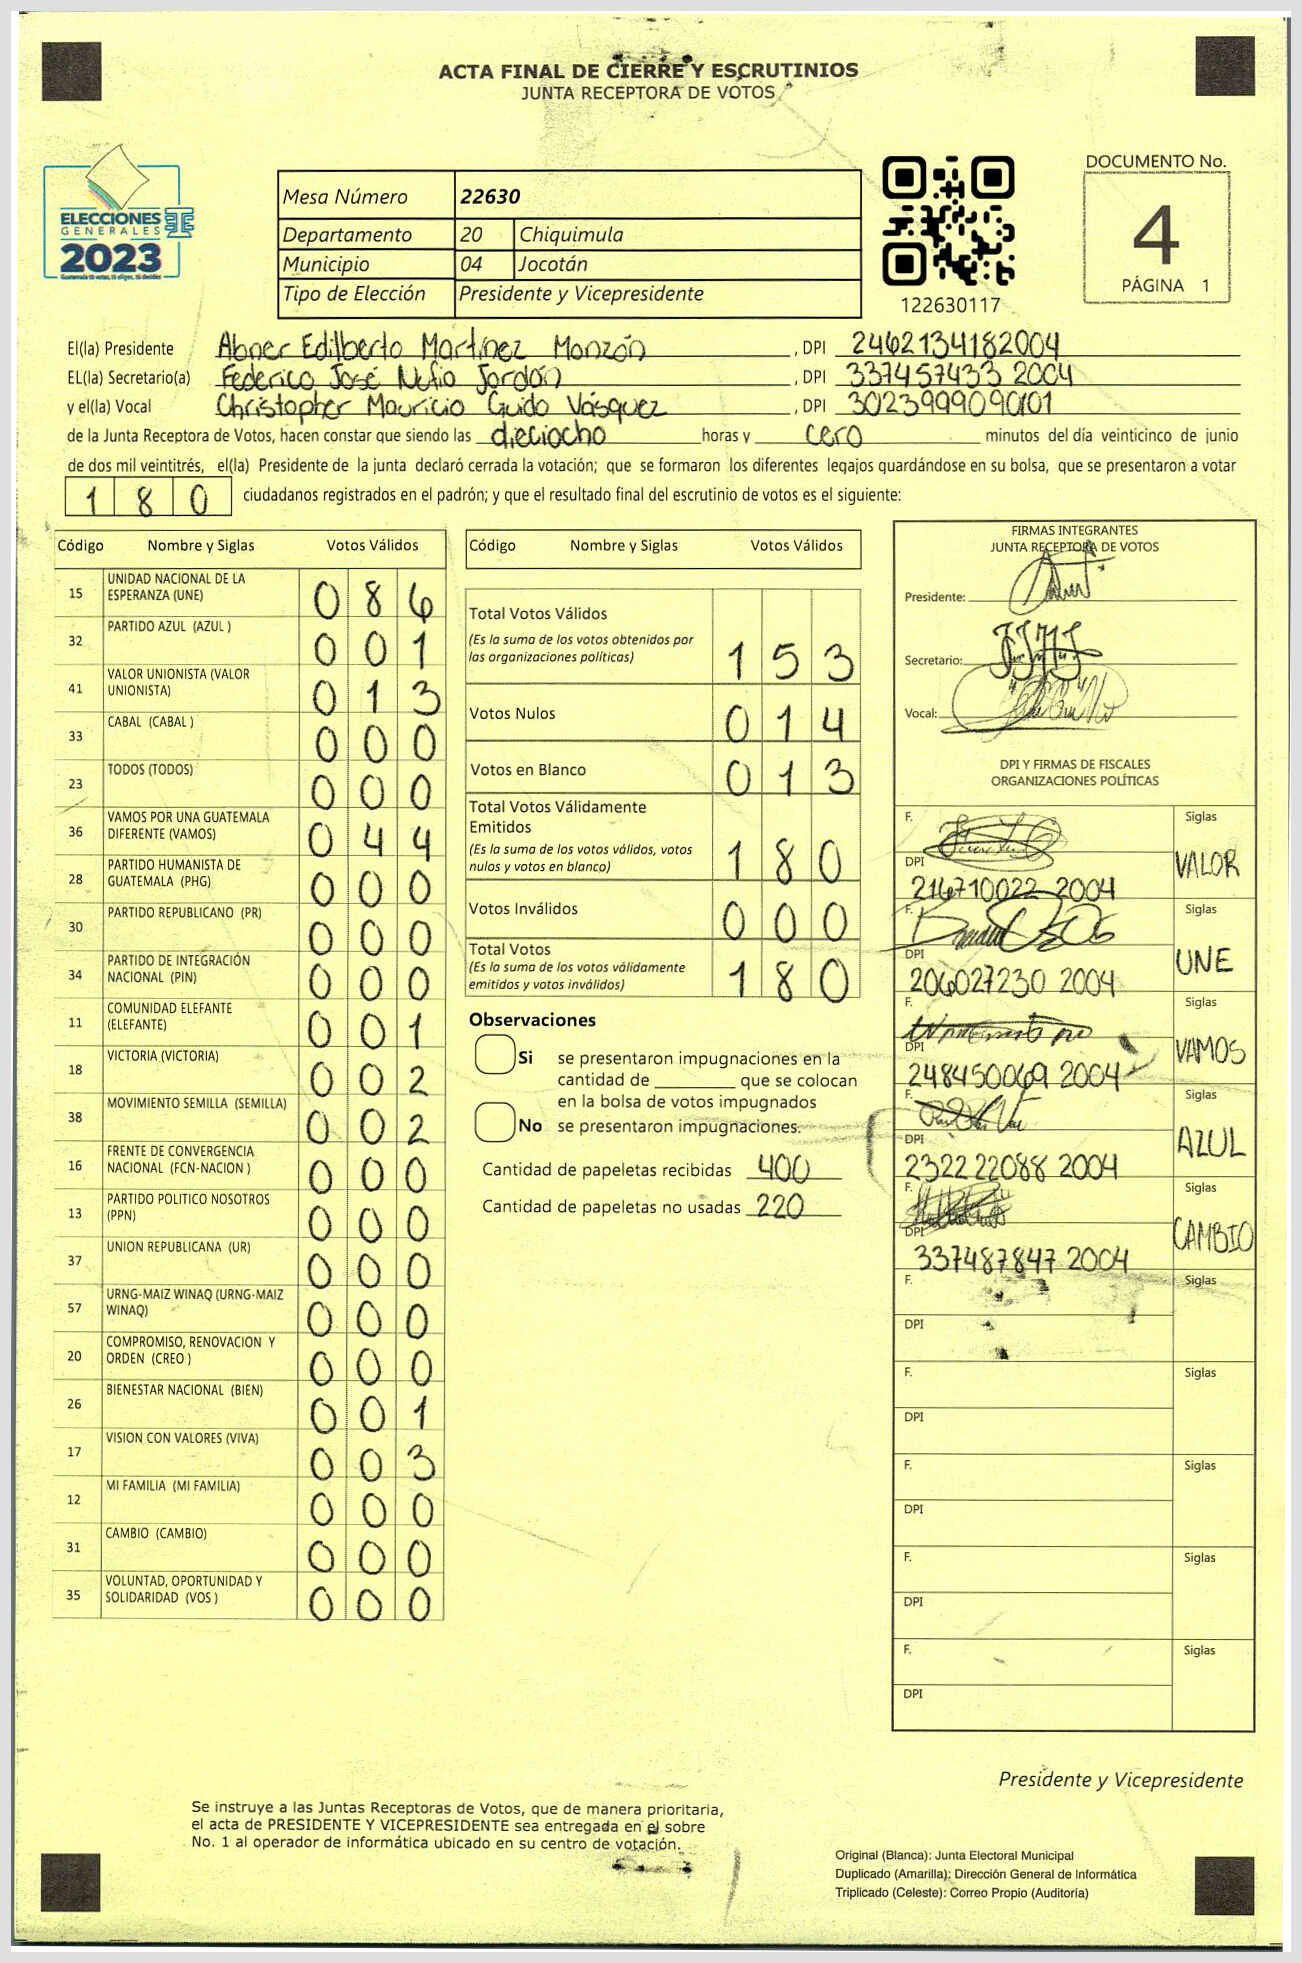 ACTA FINAL DE CIERRE Y ESCRUTINIOS
JUNTA RECEPTORA DE VOTOS
ELECCIONES
GENERALES
2023
Guatemala tú votas, tú eliges, tú decides
Mesa Número 22630
Departamento 20 Chiquimula
Municipio 04 Jocotán
Tipo de Elección Presidente y Vicepresidente
122630117
DOCUMENTO No.
4
PÁGINA 1
El(la) Presidente Abner Edilberto Martínez Monzón , DPI 2462134182004
EL(la) Secretario(a) Federico José Nufio Jordán , DPI 337457433 2004
y el(la) Vocal Christopher Mauricio Guido Vásquez , DPI 3023999090101
de la Junta Receptora de Votos, hacen constar que siendo las dieciocho horas y cero minutos del día veinticinco de junio
de dos mil veintitrés, el(la) Presidente de la junta declaró cerrada la votación; que se formaron los diferentes legajos guardándose en su bolsa, que se presentaron a votar
180 ciudadanos registrados en el padrón; y que el resultado final del escrutinio de votos es el siguiente:
Código Nombre y Siglas Votos Válidos
15 UNIDAD NACIONAL DE LA ESPERANZA (UNE) 086
32 PARTIDO AZUL (AZUL ) 001
41 VALOR UNIONISTA (VALOR UNIONISTA) 013
33 CABAL (CABAL ) 000
23 TODOS (TODOS) 000
36 VAMOS POR UNA GUATEMALA DIFERENTE (VAMOS) 044
28 PARTIDO HUMANISTA DE GUATEMALA (PHG) 000
30 PARTIDO REPUBLICANO (PR) 000
34 PARTIDO DE INTEGRACIÓN NACIONAL (PIN) 000
11 COMUNIDAD ELEFANTE (ELEFANTE) 001
18 VICTORIA (VICTORIA) 002
38 MOVIMIENTO SEMILLA (SEMILLA) 002
16 FRENTE DE CONVERGENCIA NACIONAL (FCN-NACION ) 000
13 PARTIDO POLITICO NOSOTROS (PPN) 000
37 UNION REPUBLICANA (UR) 000
57 URNG-MAIZ WINAQ (URNG-MAIZ WINAQ) 000
20 COMPROMISO, RENOVACION Y ORDEN (CREO ) 000
26 BIENESTAR NACIONAL (BIEN) 001
17 VISION CON VALORES (VIVA) 003
12 MI FAMILIA (MI FAMILIA) 000
31 CAMBIO (CAMBIO) 000
35 VOLUNTAD, OPORTUNIDAD Y SOLIDARIDAD (VOS ) 000
Código Nombre y Siglas Votos Válidos
Total Votos Válidos
(Es la suma de los votos obtenidos por
las organizaciones políticas) 153
Votos Nulos 014
Votos en Blanco 013
Total Votos Válidamente
Emitidos
(Es la suma de los votos válidos, votos
nulos y votos en blanco) 180
Votos Inválidos 000
Total Votos
(Es la suma de los votos válidamente
emitidos y votos inválidos) 180
Observaciones
Si se presentaron impugnaciones en la
cantidad de ________ que se colocan
en la bolsa de votos impugnados
No se presentaron impugnaciones.
Cantidad de papeletas recibidas 400
Cantidad de papeletas no usadas 220
FIRMAS INTEGRANTES
JUNTA RECEPTORA DE VOTOS
Presidente:
Secretario:
Vocal:
DPI Y FIRMAS DE FISCALES
ORGANIZACIONES POLÍTICAS
F. Siglas
DPI 216710022 2004 VALOR
F. Siglas
DPI 206027230 2004 UNE
F. Siglas
DPI 248450069 2004 VAMOS
F. Siglas
DPI 232222088 2004 AZUL
F. Siglas
DPI 337487847 2004 CAMBIO
F. Siglas
DPI
F. Siglas
DPI
F. Siglas
DPI
F. Siglas
DPI
F. Siglas
DPI
Presidente y Vicepresidente
Se instruye a las Juntas Receptoras de Votos, que de manera prioritaria,
el acta de PRESIDENTE Y VICEPRESIDENTE sea entregada en el sobre
No. 1 al operador de informática ubicado en su centro de votación.
Original (Blanca): Junta Electoral Municipal
Duplicado (Amarilla): Dirección General de Informática
Triplicado (Celeste): Correo Propio (Auditoría)